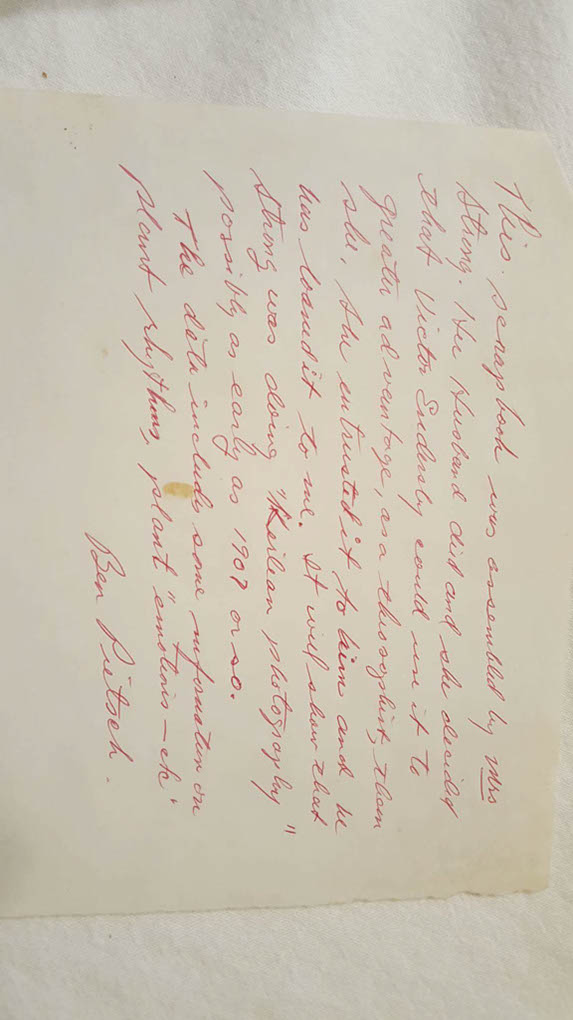 This scrapbook was assembled by Mrs
Strong. Her Husband died and she decided
that Victor Endersby could use it to
greater advantage, as a theosophist, than
she. She entrusted it to him and he
has loaned it to me. It will show that
Strong was doing "Keilean photography"
possibly as early as 1907 or so.
The data include some information on
plant rhythms, plant "emotions – etc"
Ben Pietsch.